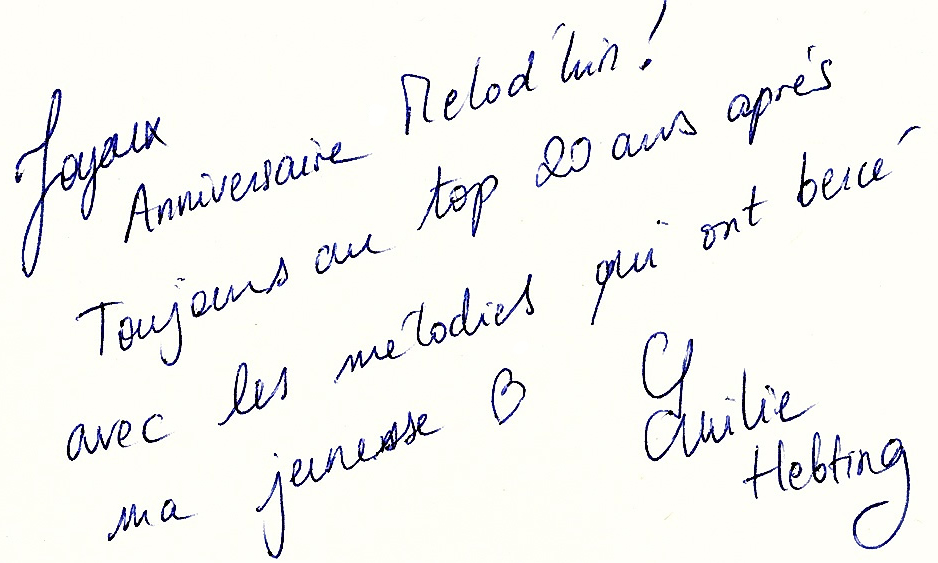 Joyeux
Anniversaire Melod'hin!
Toujours au top 20 ans après
avec les mélodies qui ont bercé
ma jeunesse
Emilie
Hebting